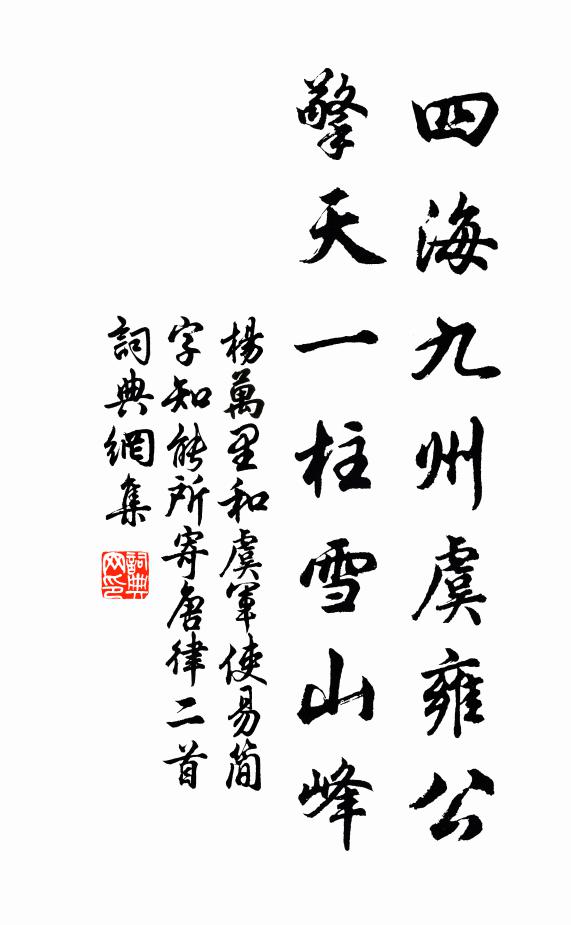 四海九州虞雍公
擎天一柱雪山峰
楊萬里和虞軍使易簡
字知能所寄唐律二首
詞典網集
詞典
网印